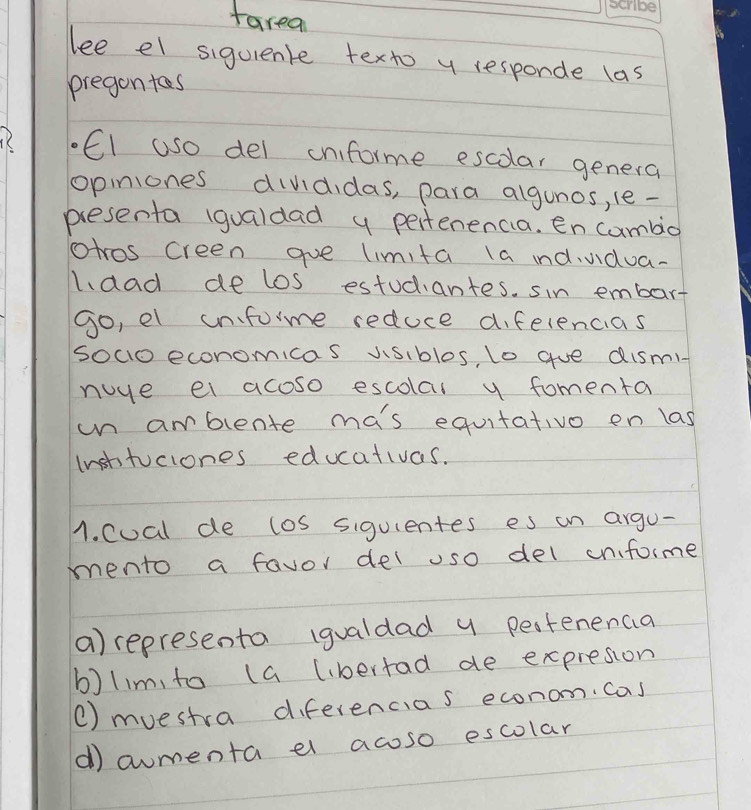 Scribe
tarea
lee el siguiente texto y responde las
preguntas
•El uso del uniforme escolar genera
opiniones divididas, para algunos, re-
presenta igualdad y pertenencia. En cambio
otros creen que limita la individua-
lidad de los estudiantes. sin embar-
go, el uniforme reduce diferencias
socio economicas visibles, lo que dismi-
nuye el acoso escolar y fomenta
un ambiente más equitativo en las
instituciones educativas.
1. cual de los siguientes es un argu-
mento a favor del uso del uniforme
a) representa igualdad y pertenencia
b) limita la libertad de expresion
c) muestra diferencias economicas
d) aumenta el acoso escolar